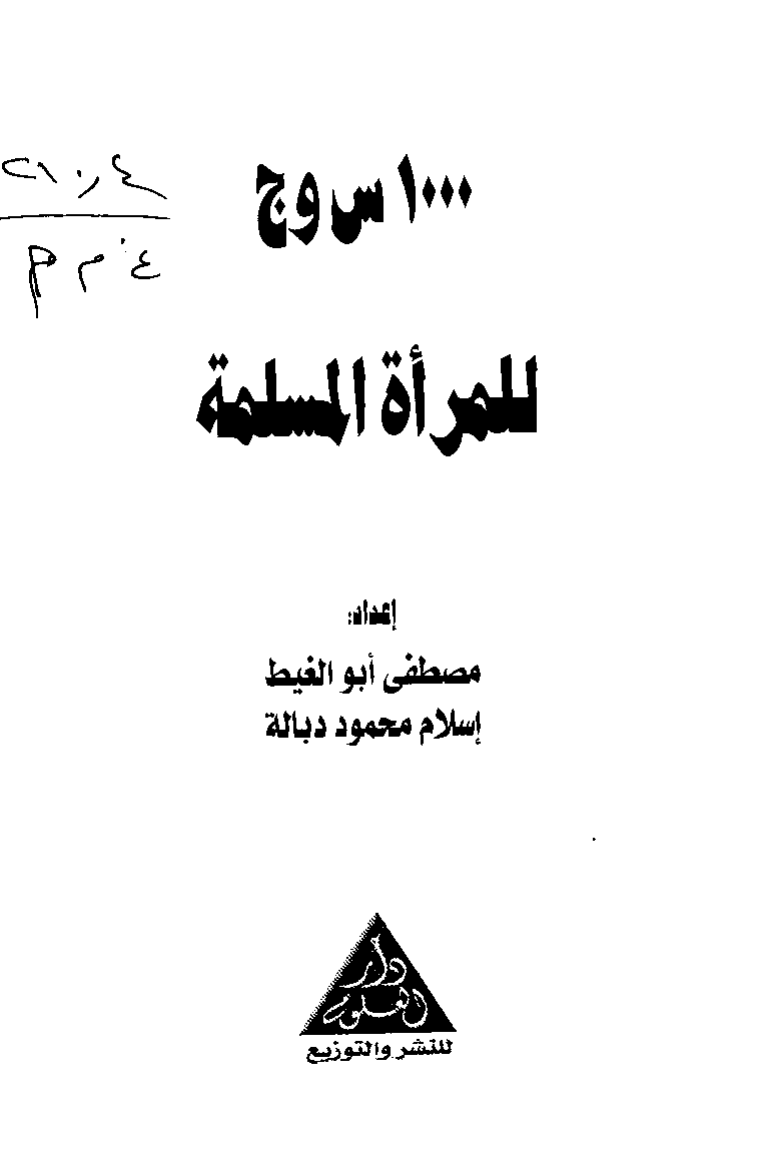 ١٠٠٠ س وج
للمرأة المسلمة
إعداد:
مصطفى أبو الغيط
إسلام محمود دبالة
دار
العلوم
للنشر والتوزيع